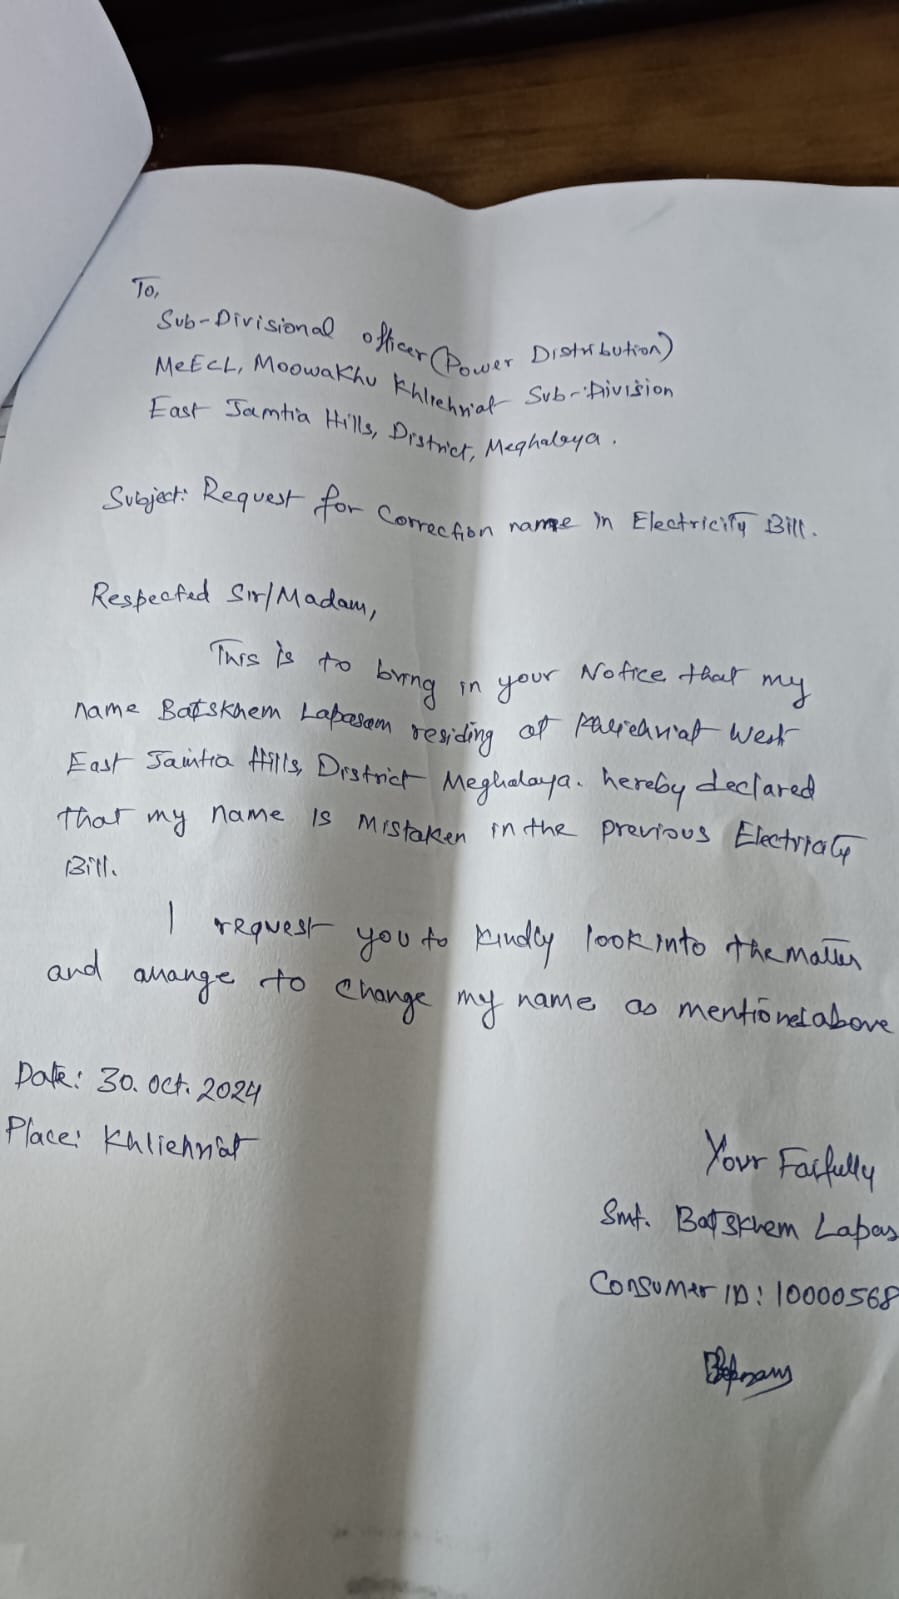 To,
Sub-Divisional officer (Power Distribution)
MeECL, Moowakhu Khliehriat Sub-Division
East Jamtia Hills, District, Meghalaya.
Subject: Request for Correction name in Electricity Bill.
Respected Sir/Madam,
This is to bring in your Notice that my
name Batskhem Lapasam residing at Khliehriat West
East Jaintia Hills, District Meghalaya. hereby declared
that my name is mistaken in the previous Electricity
Bill.
I request you to kindly look into the matter
and arrange to change my name as mentioned above
Date: 30. Oct. 2024
Place: Khliehriat
Your Faifully
Smt. Batskhem Lapas
Consumer ID: 10000568